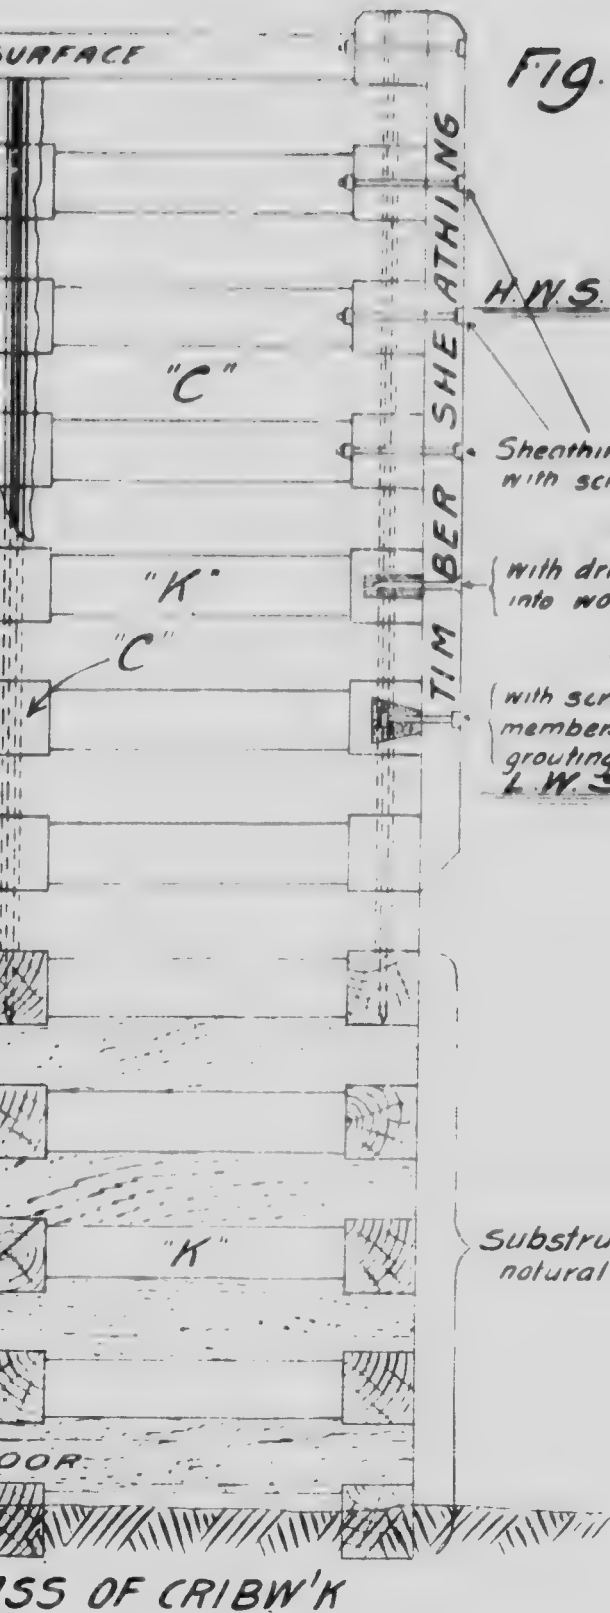 SURFACE
Fig.
TIMBER SHEATHING
H.W.S.
"C"
Sheathin
with sc
"K"
with dri
into wo
"C"
with scr
member
grouting
L.W.S
Substru
natural
"K"
OOR
SS OF CRIBW'K